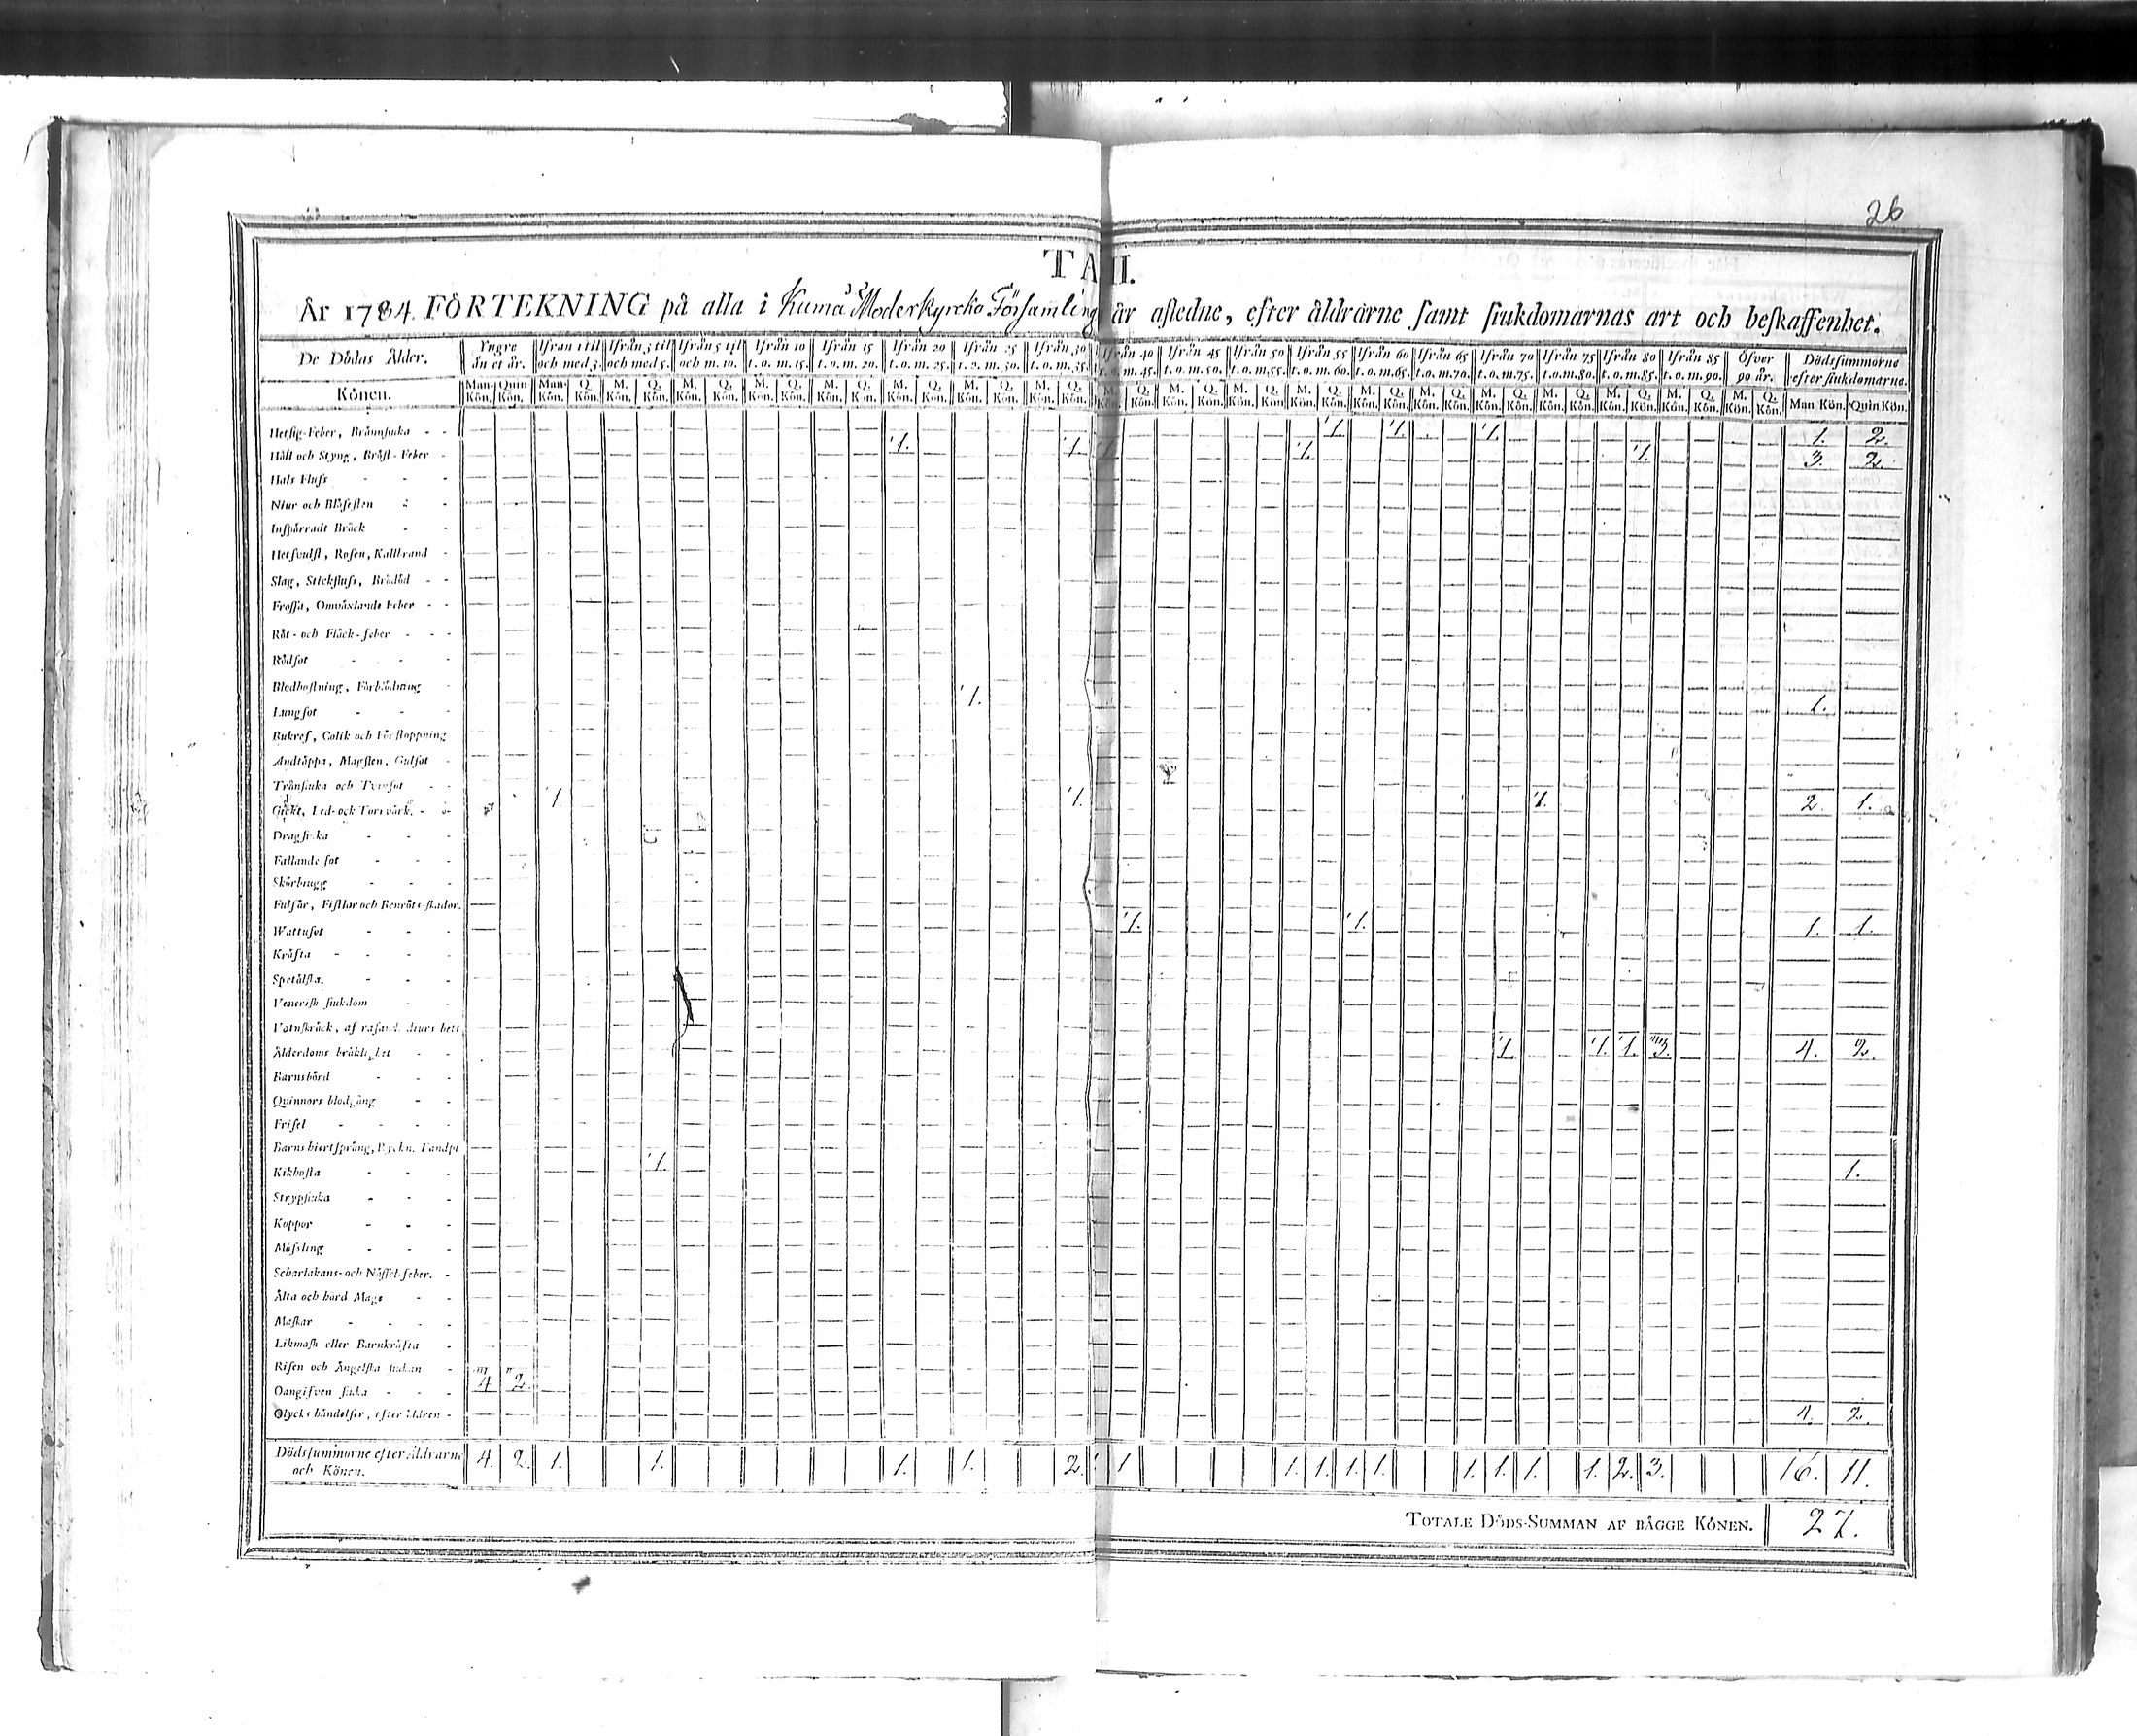 26
TA II.
År 1784. FÖRTEKNING på alla i Kumå Moderkyrcko Församling år afledne, efter åldrarne samt siukdomarnas art och beskaffenhet.
De Dödas Ålder. Yngre än et år. Ifrån 1 til och med 3. Ifrån 3 til och med 5. Ifrån 5 til och m. 10. Ifrån 10 t. o. m. 15. Ifrån 15 t. o. m. 20. Ifrån 20 t. o. m. 25. Ifrån 25 t. o. m. 30. Ifrån 30 t. o. m. 35. Ifrån 40 t. o. m. 45. Ifrån 45 t. o. m. 50. Ifrån 50 t. o. m. 55. Ifrån 55 t. o. m. 60. Ifrån 60 t. o. m. 65. Ifrån 65 t. o. m. 70. Ifrån 70 t. o. m. 75. Ifrån 75 t. o. m. 80. Ifrån 80 t. o. m. 85. Ifrån 85 t. o. m. 90. Öfver 90 år. Dödssummorne efter siukdomarne.
Könen. Man-Kön. Quin Kön. Man-Kön. Q. Kön. M. Kön. Q. Kön. M. Kön. Q. Kön. M. Kön. Q. Kön. M. Kön. Q. Kön. M. Kön. Q. Kön. M. Kön. Q. Kön. M. Kön. Q. Kön. M. Kön. Q. Kön. M. Kön. Q. Kön. M. Kön. Q. Kön. M. Kön. Q. Kön. M. Kön. Q. Kön. M. Kön. Q. Kön. M. Kön. Q. Kön. M. Kön. Q. Kön. M. Kön. Q. Kön. M. Kön. Q. Kön. M. Kön. Q. Kön. Man Kön. Quin Kön.
Hetsig-Feber, Brännsiuka 1. 1. 1. 1. 2.
Håll och Styng, Bröst-Feber 1. 1. 1. 1. 1. 3. 2.
Hals Fluss
Niur och Blåsesten
Inspärradt Bråck
Hetsvulst, Rosen, Kallbrand
Slag, Stickfluss, Brådöd
Frossa, Omväxlande Feber
Röt- och Fläck-feber
Rödsot
Blodhostning, Förblödning
Lungsot 1. 1.
Bukref, Colik och Förstoppning
Andtäppa, Magsten, Gulsot
Tränsiuka och Tvinsot
Gickt, Led- och Torrvärk. 1 1. 1. 2. 1.
Dragsiuka
Fallande sot
Skörbiugg
Fulsår, Fistlar och Benröts-skador.
Wattusot 1. 1. 1. 1.
Kräfta
Spetälska.
Venerisk siukdom
Vatuskräck, af rasand diurs bett
Ålderdoms bräklighet 1. 1. 1. 3. 4. 2.
Barnsbörd
Quinnors blodgång
Frisel
Barns hiertsprång, Ryckn. Tandpl
Kikhosta 1. 1.
Strypsiuka
Koppor
Mässling
Scharlakans- och Nässel-feber.
Älta och hård Mage
Maskar
Likmask eller Barnkräfta
Risen och Ängelska siukan
Oangifven siuka 4 2.
Olycks händelser, efter åldren 4. 2.
Dödssummorne efter Åldrarne och Könen. 4. 2. 1. 1. 1. 1. 2. 1 1. 1. 1. 1. 1. 1. 1. 1. 2. 3. 16. 11.
TOTALE DÖDS-SUMMAN AF BÄGGE KÖNEN. 27.